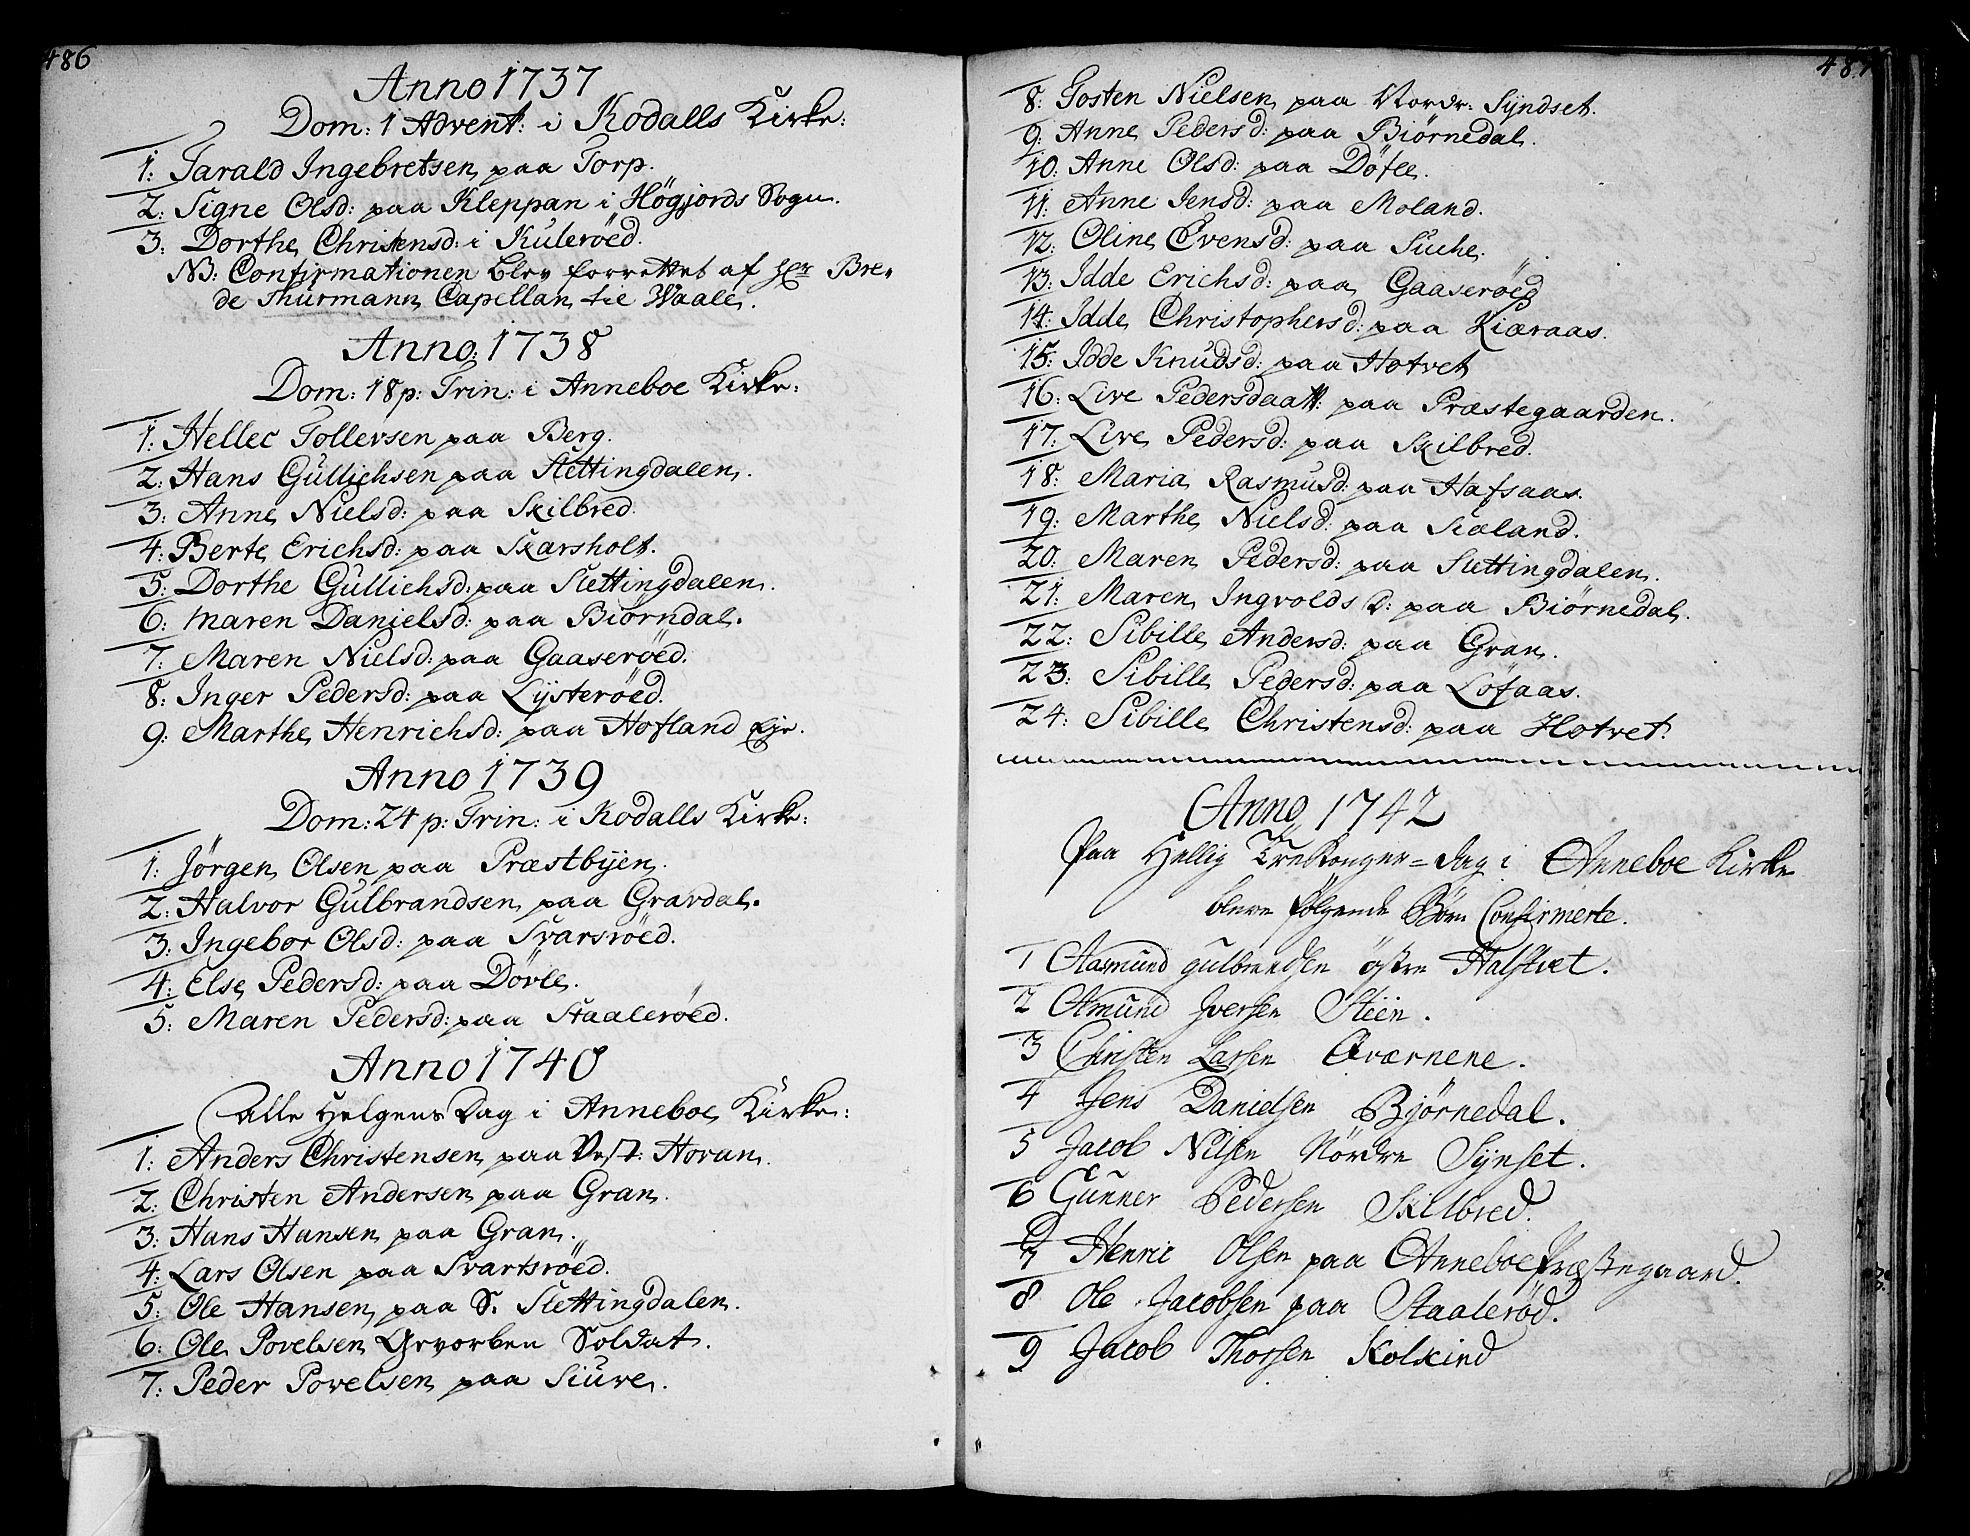 486
Anno 1737
Dom: 1 Advent: i Kodalls Kirke:
1: Tarald Ingebretsen paa Torp.
2: Signe Olsd: paa Kleppan i Högjords Sogn.
3: Dorthe Christensd: i Kuleröed.
NB: Confirmationen blev forrettet af Hr Bre-
de Thurmann Capellan til Waale.
Anno 1738
Dom: 18 p: Trin: i Anneboe Kirke:
1: Hellec Tollevsen paa Berg.
2: Hans Gullichsen paa Slettingdalen.
3: Anne Nielsd: paa Skilbred.
4: Berte Erichsd: paa Skarsholt.
5: Dorthe Gullichsd: paa Slettingdalen.
6: Maren Danielsd: paa Biörndal.
7: Maren Nielsd: paa Gaaseröed.
8: Inger Pedersd: paa Lysteröed.
9: Marthe Henrichsd: paa Hofland Eje.
Anno 1739
Dom: 24 p: Trin: i Kodalls Kirke:
1: Jörgen Olsen paa Præstbyen.
2: Halvor Gulbrandsen paa Gravdal.
3: Ingebor Olsd: paa Svarsröed.
4: Else Pedersd: paa Dövle.
5: Maren Pedersd: paa Staaleröed.
Anno 1740
Alle Helgens Dag i Anneboe Kirke:
1: Anders Christensen paa Vest: Hovan.
2: Christen Andersen paa Gran.
3: Hans Hansen paa Gran.
4: Lars Olsen paa Svartsröed.
5: Ole Hansen paa S. Slettingdalen.
6: Ole Povelsen Gevorben Soldat.
7: Peder Povelsen paa Siuve.
487
8: Gosten Nielsen paa Nordr: Syndset.
9: Anne Pedersd: paa Biörnedal.
10: Anne Olsd: paa Döfle.
11: Anne Jensd: paa Moland.
12: Oline Evensd: paa Siuhe.
13: Idde Erichsd: paa Gaaseröed
14: Idde Christophersd: paa Kiæraas.
15: Idde Knudsd: paa Hotvet
16: Live Pedersdaatt: paa Præstegaarden.
17: Live Pedersd: paa Skilbred.
18: Maria Rasmusd: paa Hafsaas.
19: Marthe Nielsd: paa Siæland.
20: Maren Pedersd: paa Slettingdalen.
21: Maren Ingvolds D: paa Biörnedal.
22: Sibille Andersd: paa Gran.
23: Sibille Pedersd: paa Löfaas.
24: Sibille Christensd: paa Hotvet.
Anno 1742
Paa Hellig Tre Konger=dag i Anneboe Kirke
bleve fölgende Börn Confirmerte.
1 Aasmund gulbrandsen östre Halstvet.
2 Amund Iversen Steen.
3 Christen Larsen Qværnene.
4 Jens Danielsen Bjørnedal.
5 Jacob Nilsen Nördre Synset.
6 Gunner Pedersen Skilbred.
7 Henric Olsen paa Anneboe Præstegaard.
8 Ole Jacobsen paa Staaleröd.
9 Jacob Thorsen Kolkind